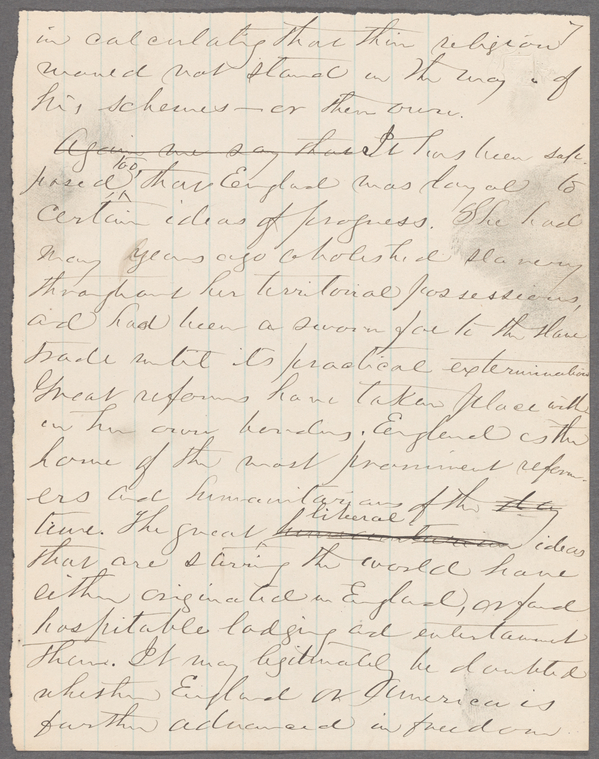 7
in calculating that their religion
would not stand in the way of
his schemes — or their own.
Again we say that It has been sup-
too,
posed that England was loyal to
certain ideas of progress. She had
many years ago abolished slavery
throughout her territorial possessions,
and had been a sworn foe to the slave
trade until its practical extermination
Great reforms have taken place with
in her own borders. England is the
home of the most prominent reform-
ers and humanitarians of the day
liberal
time. The great humanitarian ideas
that are stirring the world have
either originated in England, or found
hospitable lodging and entertainment
there. It may legitimately be doubted
whether England or America is
further advanced in freedom